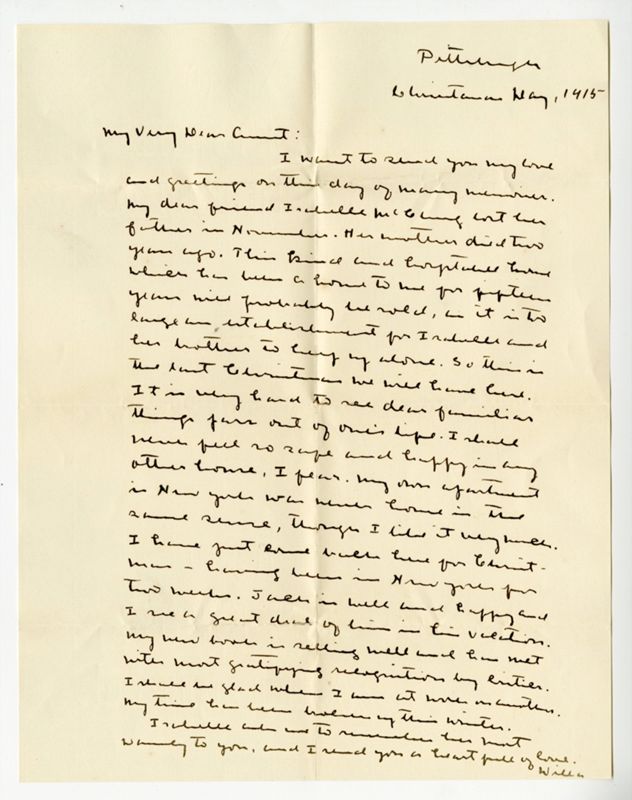 Pittsburgh
Christmas Day, 1915
My Very Dear Aunt:
I want to send you my love
and greetings on this day of many memories.
My dear friend Isabelle McClung lost her
father in November. Her mother died two
years ago. This kind and hospitable home
which has been a home to me for fifteen
years will probably be sold, as it is too
large an establishment for Isabelle and
her brother to keep up alone. So this is
the last Christmas we will have here.
It is very hard to see dear familiar
things pass out of one's life. I shall
never feel so safe and happy in any
other house, I fear. My own apartment
in New York was never home in the
same sense, though I like it very much.
I have just come back here for Christ-
mas - having been in New York for
two weeks. Jack is well and happy and
I see a great deal of him in his vacation.
My new book is selling well and has met
with most gratifying recognition by critics.
I shall be glad when I am at work on another.
My time has been broken up this winter.
Isabelle asks me to remember her most
warmly to you, and I send you a heart full of love.
Willa